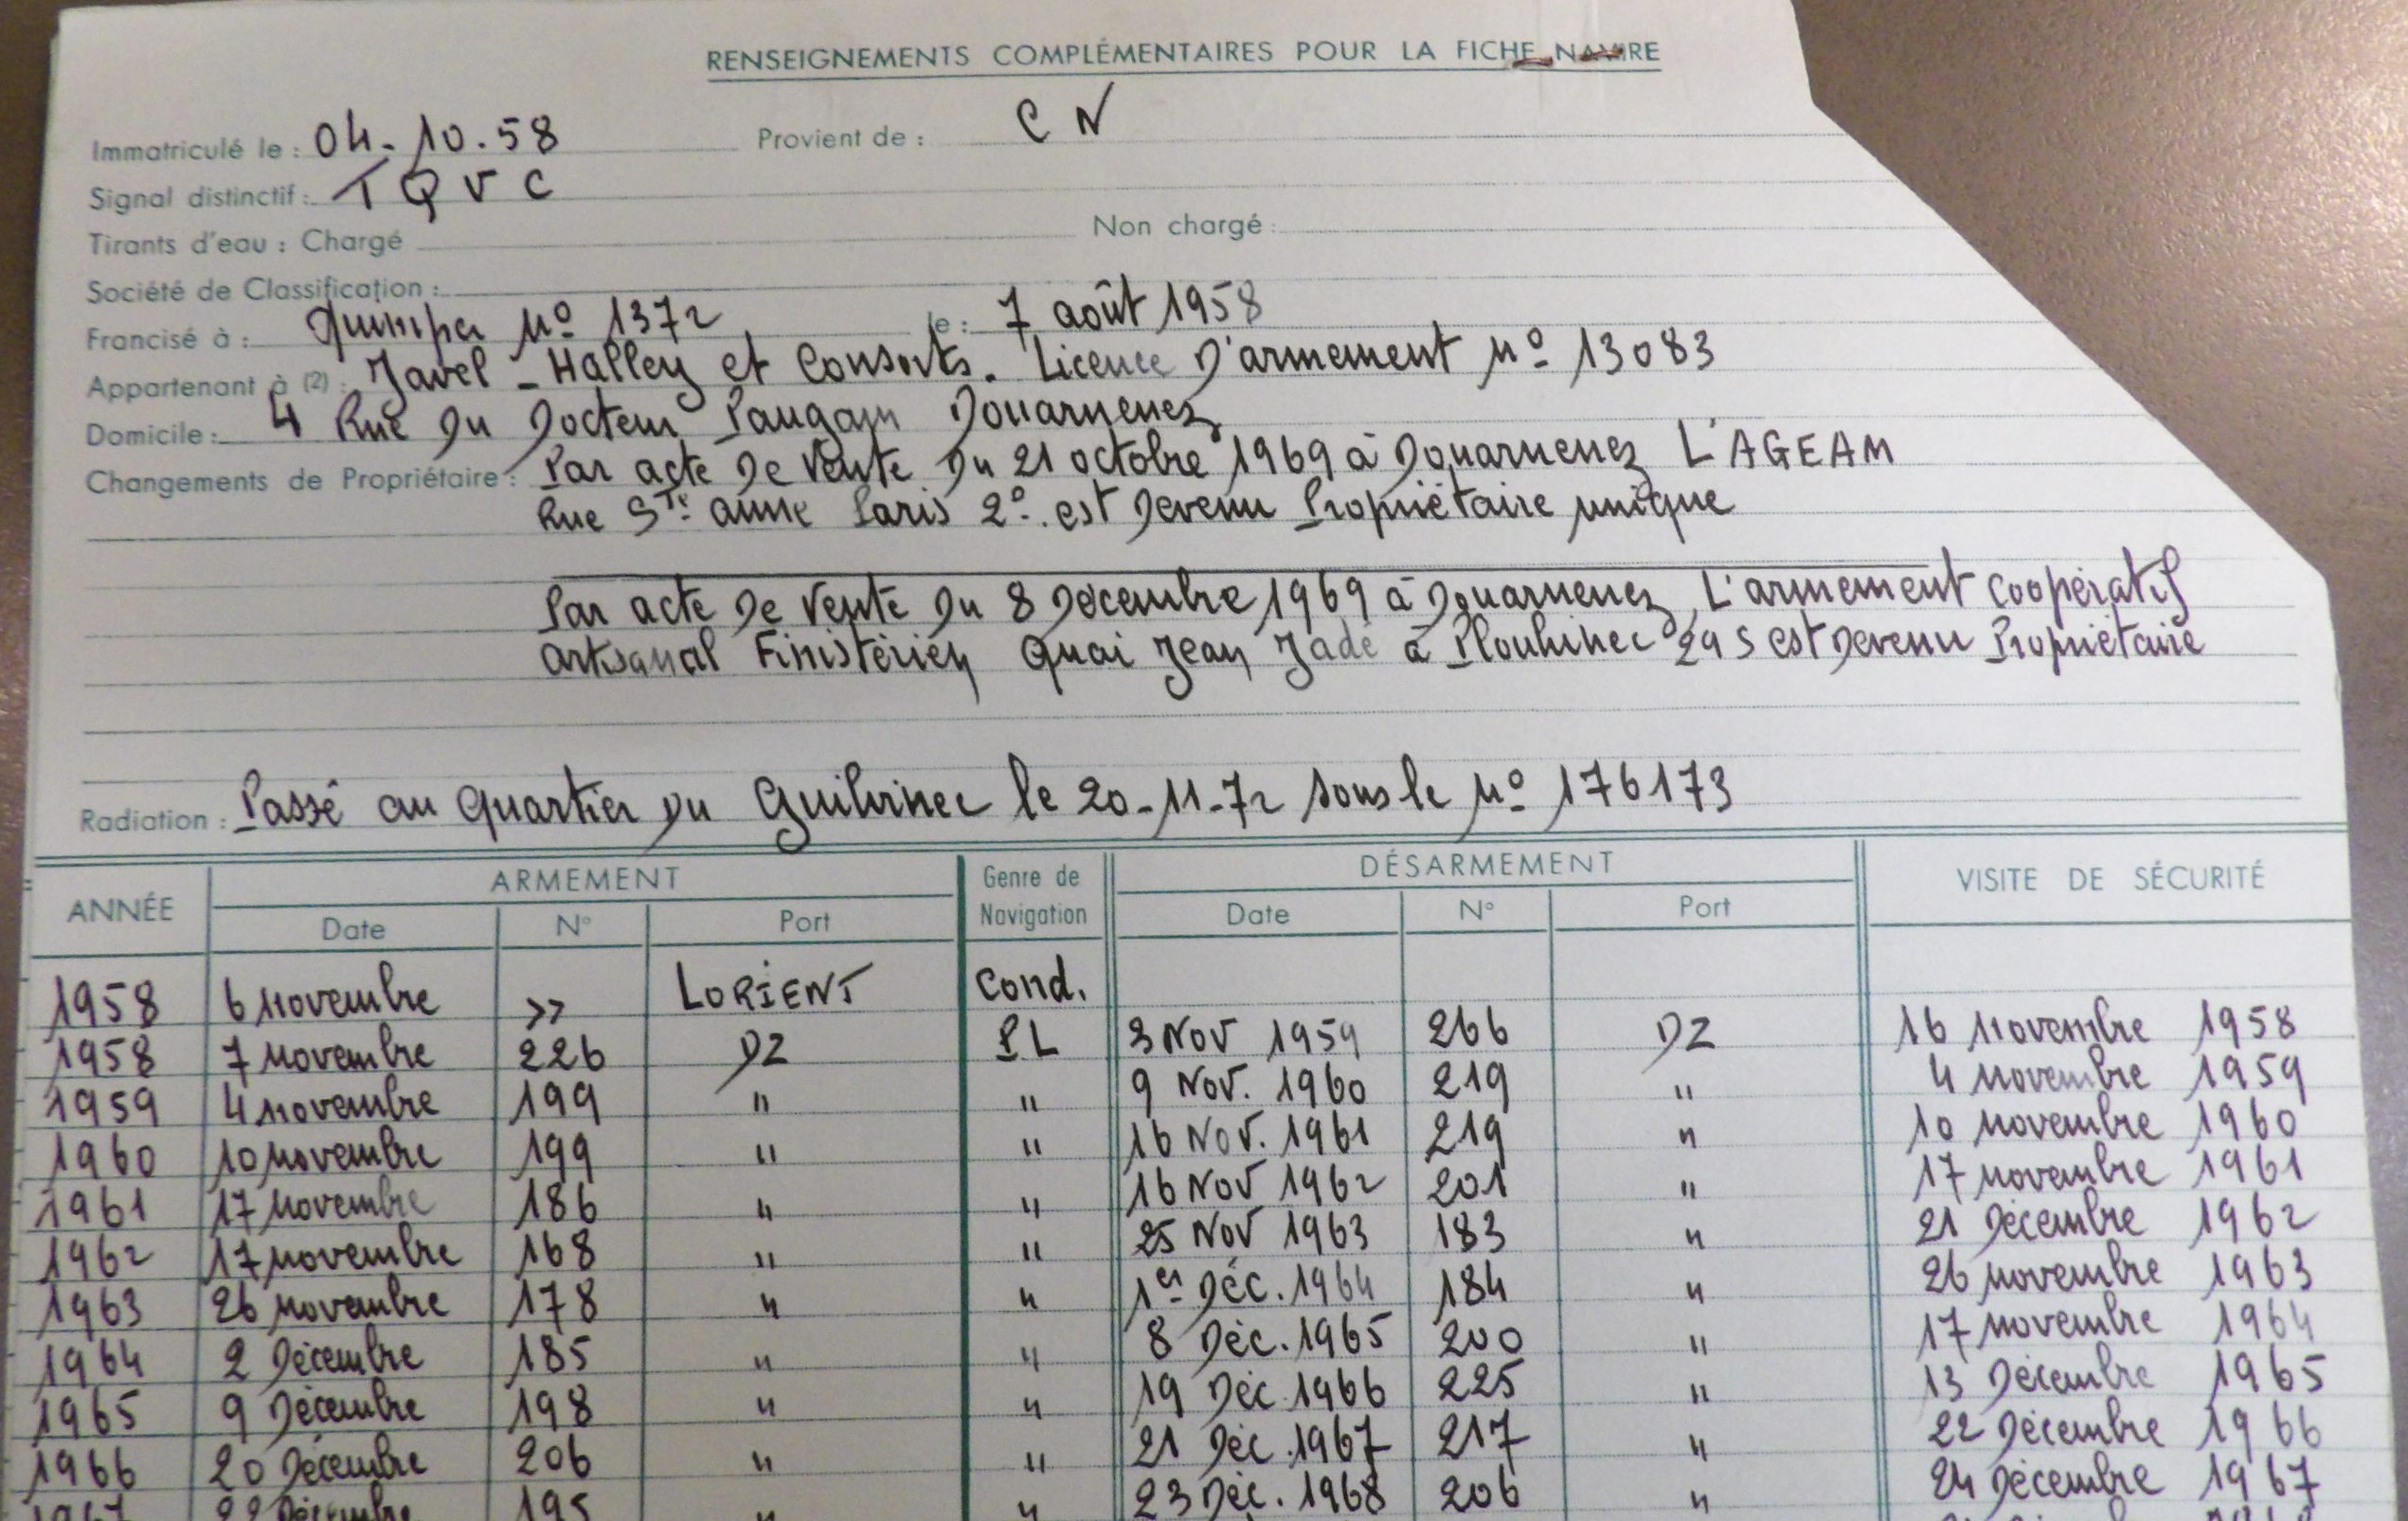 RENSEIGNEMENTS COMPLÉMENTAIRES POUR LA FICHE NAVIRE
Immatriculé le : 04-10.58 Provient de : C N
Signal distinctif : T Q V C
Tirants d'eau : Chargé Non chargé :
Société de Classification :
Francisé à : Quimper No 1372 le : 7 août 1958
Appartenant à (2) : Javel - Halley et Consorts. Licence D'armement No 13083
Domicile : 4 Rue Du Docteur Paugam Douarnenez
Changements de Propriétaire : Par acte De Vente Du 21 octobre 1969 à Douarnenez L'AGEAM
Rue Ste anne Paris 2°. est Devenu Propriétaire unique
Par acte De Vente Du 8 Décembre 1969 à Douarnenez L'armement coopératif
artisanal Finistérien Quai Jean Jadé à Plouhinec 29 S est Devenu Propriétaire
Radiation : Passé au Quartier Du Guilvinec le 20-11-72 sous le No 176173
ANNÉE ARMEMENT Genre de Navigation DÉSARMEMENT VISITE DE SÉCURITÉ
Date N° Port Date N° Port
1958 6 Novembre >> LORIENT Cond.
1958 7 Novembre 226 DZ PL 3 NOV 1959 266 DZ 16 Novembre 1958
1959 4 Novembre 199 " " 9 NOV. 1960 219 " 4 Novembre 1959
1960 10 Novembre 199 " " 16 NOV. 1961 219 " 10 Novembre 1960
1961 17 Novembre 186 " " 16 NOV 1962 201 " 17 Novembre 1961
1962 17 Novembre 168 " " 25 NOV 1963 183 " 21 Décembre 1962
1963 26 Novembre 178 " " 1er DÉC. 1964 184 " 26 Novembre 1963
1964 2 Décembre 185 " " 8 Déc. 1965 200 " 17 Novembre 1964
1965 9 Décembre 198 " " 19 Déc 1966 225 " 13 Décembre 1965
1966 20 Décembre 206 " " 21 Déc. 1967 217 " 22 Décembre 1966
1967 22 Décembre 195 " " 23 Déc. 1968 206 " 24 Décembre 1967